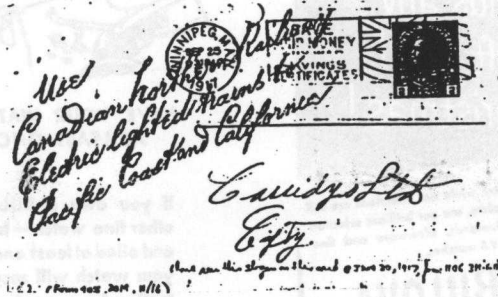 WINNIPEG, MAN.
SEP 25
1917
MONEY
SAVINGS
CERTIFICATES
Use
Canadian Northern Railway
Electric lighted trains to
Pacific Coast and California
Cassidys Ltd
City
(have seen this slogan on this card @ June 20, 1917, from
(Form 902, 20M, 11/16)